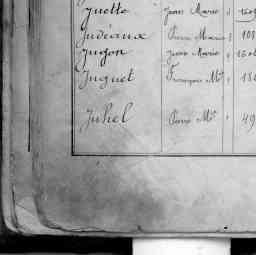 Guette Jean Marie
Judéaux Pierre Marie 109
Jugon Jean Marie
Juguet François Mie 18
Juhel Pierre Mie 49